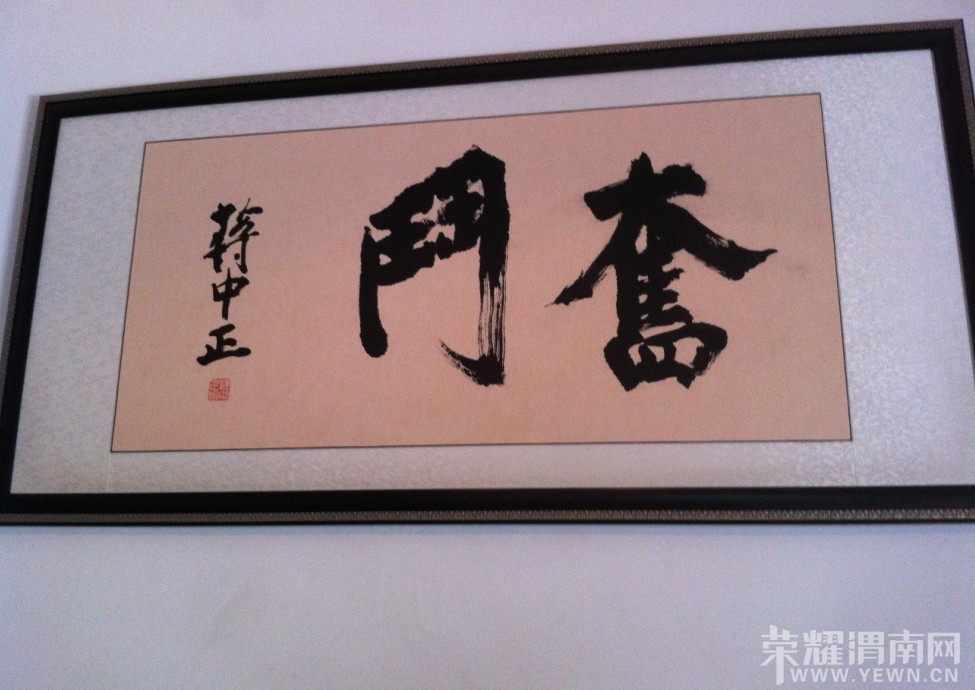 奮鬥
蔣中正
荣耀渭南网
WWW.YEWN.CN